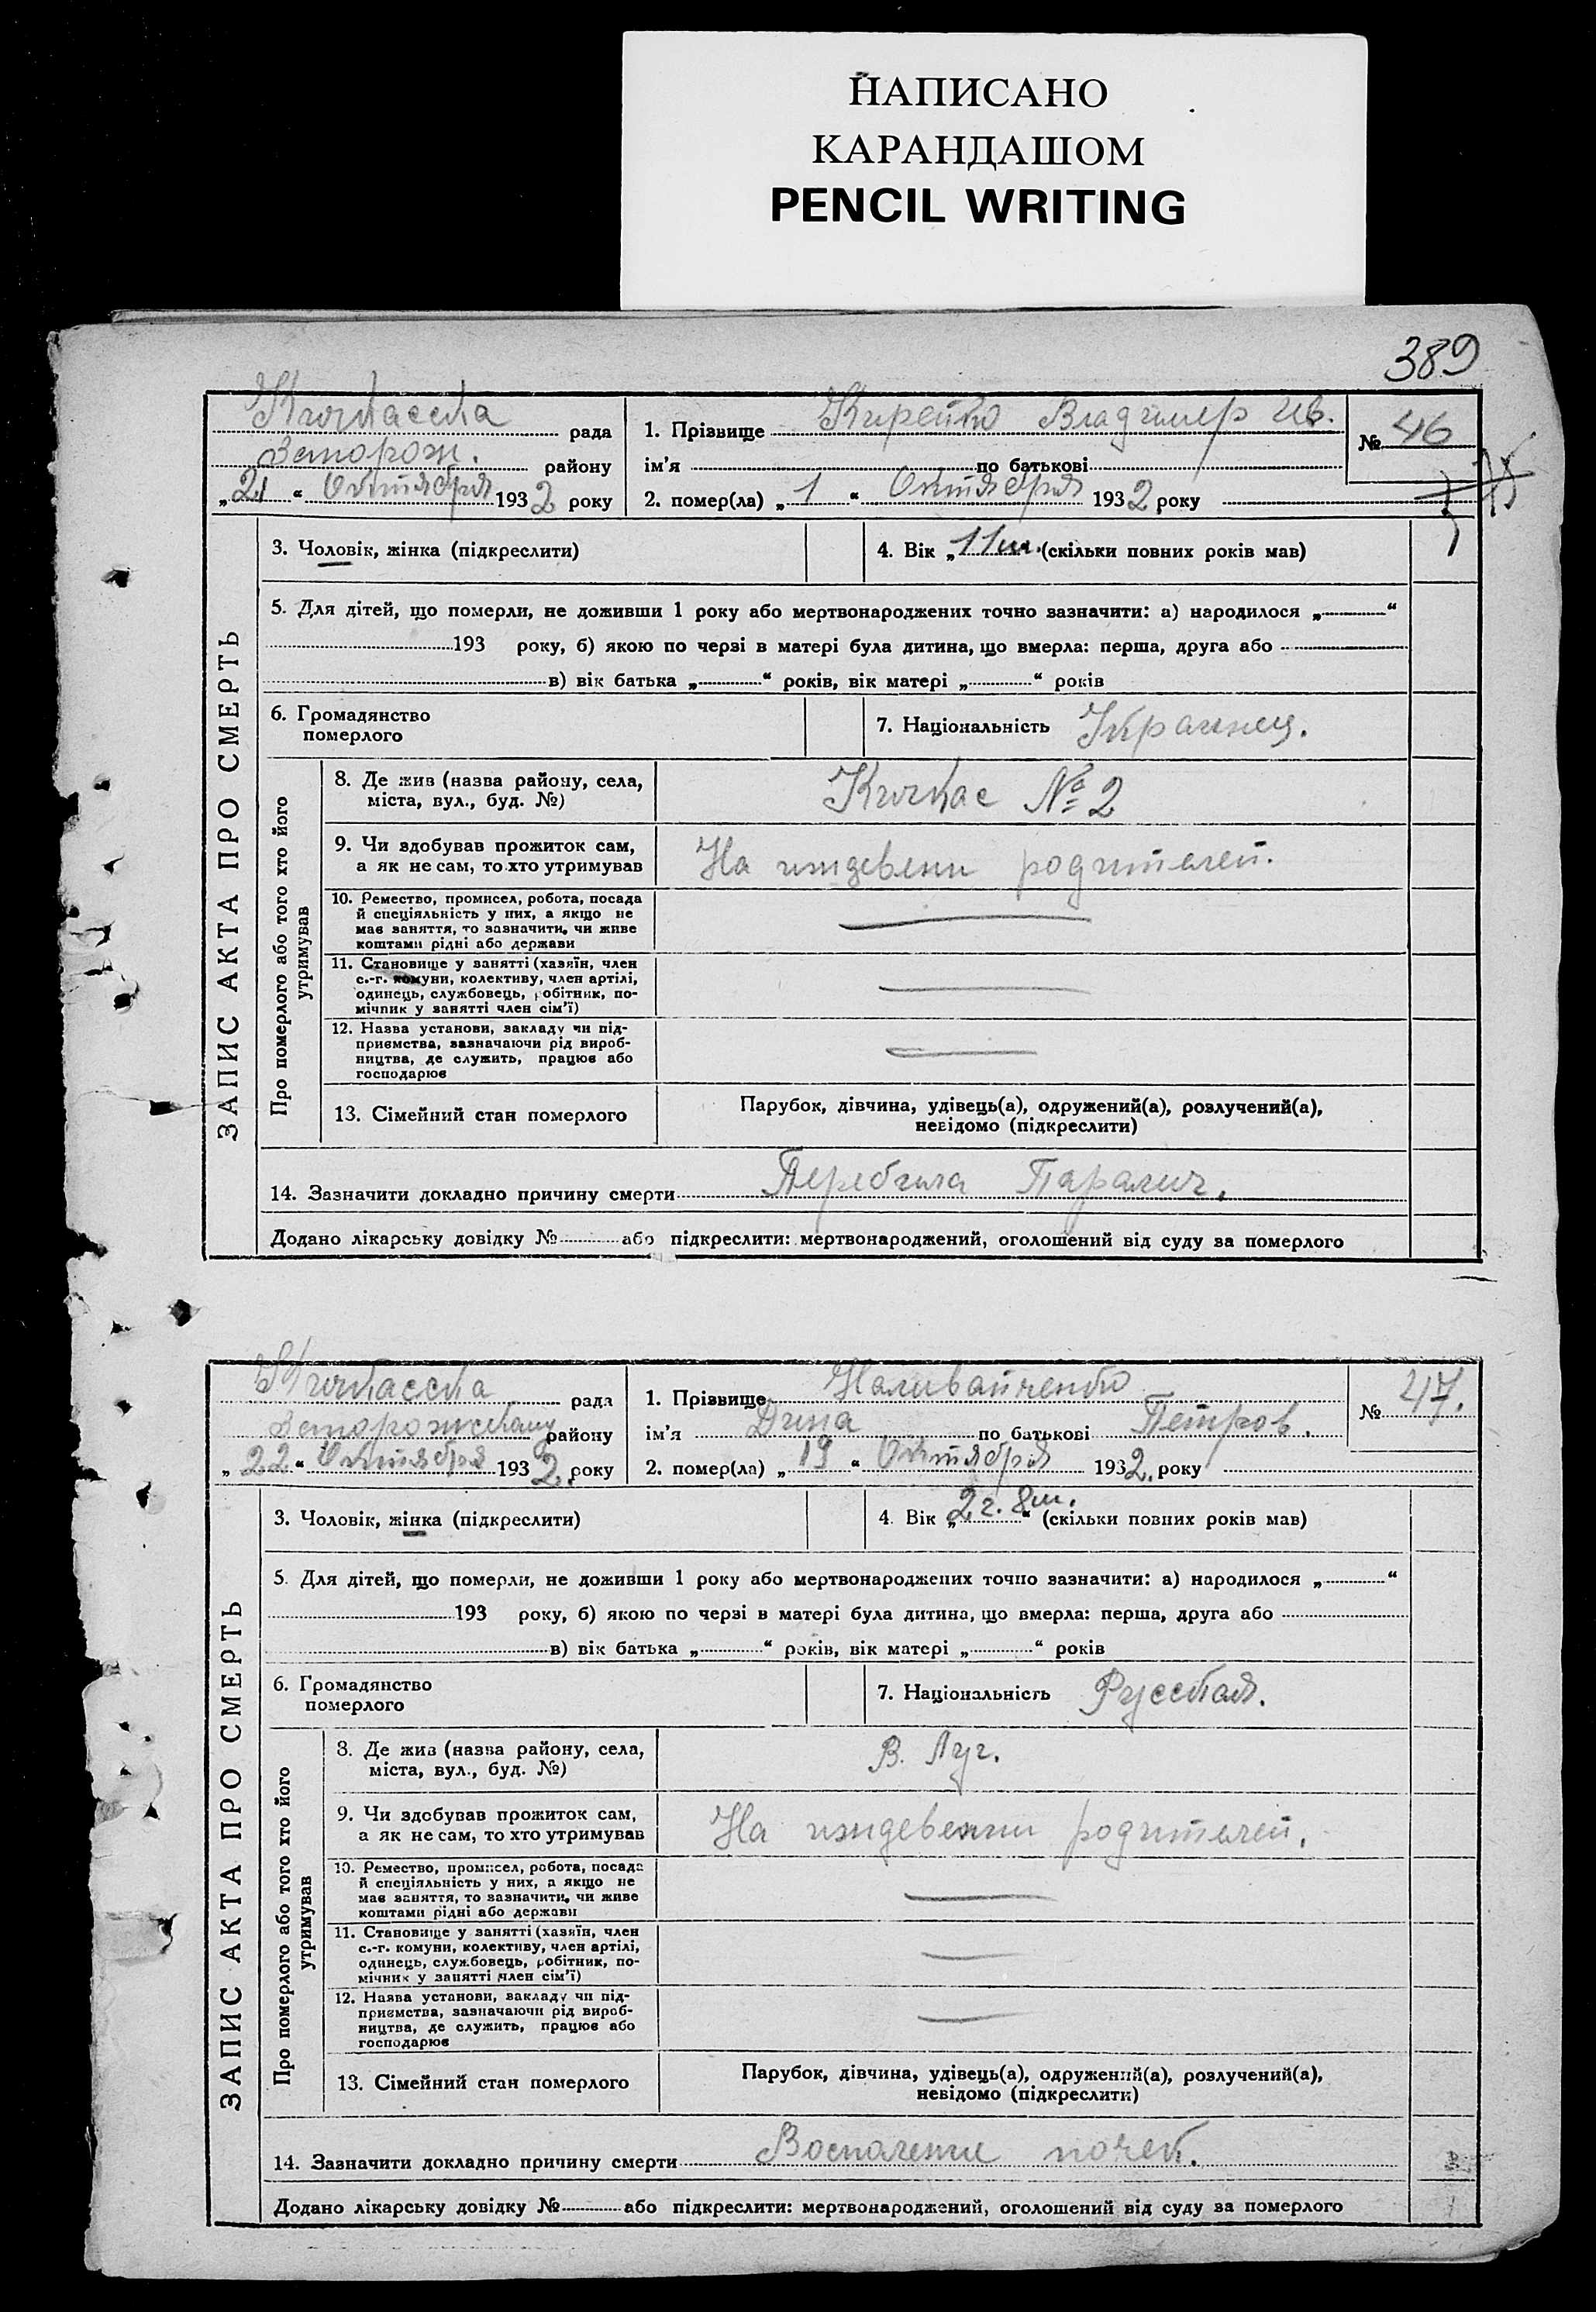 НАПИСАНО
КАРАНДАШОМ
PENCIL WRITING
389
ЗАПИС АКТА ПРО СМЕРТЬ
Кичкасска рада
Запорож. району
„21“ Октября 1932 року
1. Прізвище Кирейко Владимир Ив.
ім'я по батькові
2. помер(ла) „1“ Октября 1932 року
№ 46
3. Чоловік, жінка (підкреслити)
4. Вік „11 м. (скільки повних років мав)
5. Для дітей, що померли, не доживши 1 року або мертвонароджених точно зазначити: а) народилося „ “
193 року, б) якою по черзі в матері була дитина, що вмерла: перша, друга або
в) вік батька „ “ років, вік матері „ “ років
6. Громадянство
померлого
7. Національність Украинец.
Про померлого або того хто його
утримував
8. Де жив (назва району, села,
міста, вул., буд. №)
Кичкас № 2
9. Чи здобував прожиток сам,
а як не сам, то хто утримував
На иждевени родителей.
10. Ремество, промисел, робота, посада
й спеціяльність у них, а якщо не
має заняття, то зазначити, чи живе
коштами рідні або держави
11. Становище у занятті (хазяїн, член
с.-г. комуни, колективу, член артілі,
одинець, службовець, робітник, по-
мічник у занятті член сім'ї)
12. Назва установи, закладу чи під-
приємства, зазначаючи рід вироб-
ництва, де служить, працює або
господарює
13. Сімейний стан померлого
Парубок, дівчина, удівець(а), одружений(а), розлучений(а),
невідомо (підкреслити)
14. Зазначити докладно причину смерти Паралич.
Додано лікарську довідку № або підкреслити: мертвонароджений, оголошений від суду за померлого
ЗАПИС АКТА ПРО СМЕРТЬ
Кичкасска рада
району
„22“ Октября 1932. року
1. Прізвище Наливайченко
ім'я Дина по батькові Петров.
2. помер(ла) „19“ Октября 1932. року
№ 47.
3. Чоловік, жінка (підкреслити)
4. Вік „2 г. 8 м.“ (скільки повних років мав)
5. Для дітей, що померли, не доживши 1 року або мертвонароджених точно зазначити: а) народилося „ “
193 року, б) якою по черзі в матері була дитина, що вмерла: перша, друга або
в) вік батька „ “ років, вік матері „ “ років
6. Громадянство
померлого
7. Національність Русская.
Про померлого або того хто його
утримував
8. Де жив (назва району, села,
міста, вул., буд. №)
В. Луг.
9. Чи здобував прожиток сам,
а як не сам, то хто утримував
На иждевении родителей.
10. Ремество, промисел, робота, посада
й спеціяльність у них, а якщо не
має заняття, то зазначити, чи живе
коштами рідні або держави
11. Становище у занятті (хазяїн, член
с.-г. комуни, колективу, член артілі,
одинець, службовець, робітник, по-
мічник у занятті член сім'ї)
12. Назва установи, закладу чи під-
приємства, зазначаючи рід вироб-
ництва, де служить, працює або
господарює
13. Сімейний стан померлого
Парубок, дівчина, удівець(а), одружений(а), розлучений(а),
невідомо (підкреслити)
14. Зазначити докладно причину смерти Воспаление почек.
Додано лікарську довідку № або підкреслити: мертвонароджений, оголошений від суду за померлого